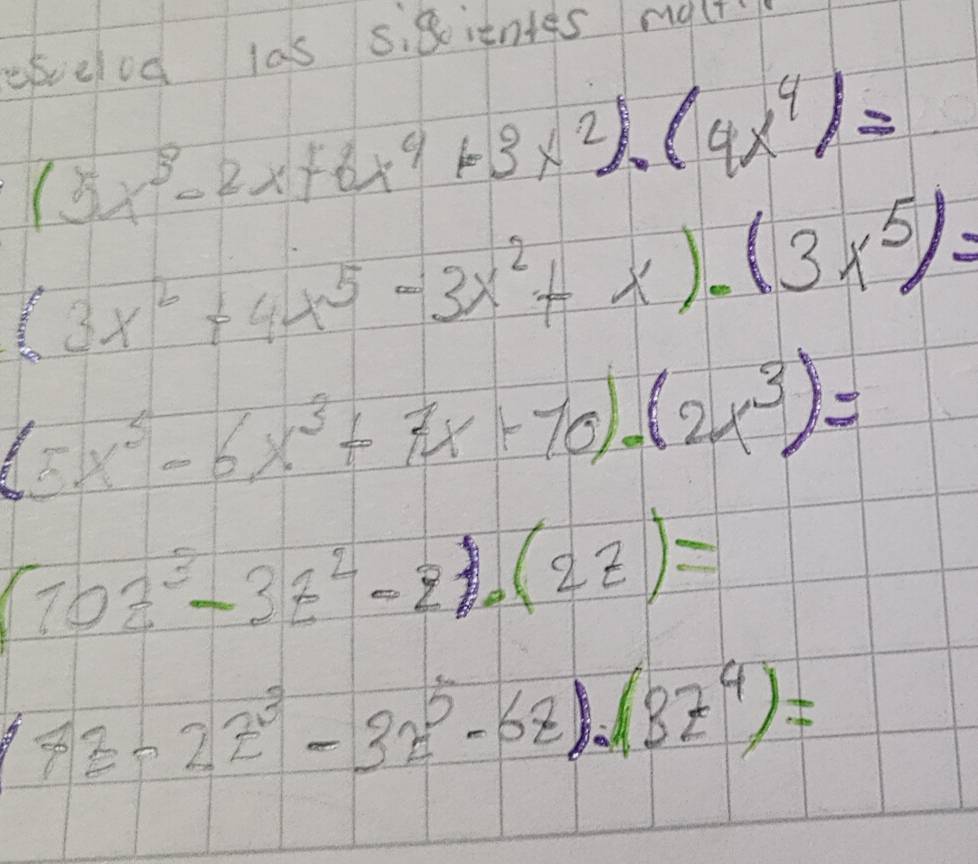 las siguientes
(5x³ - 2x + 6x⁴ + 3x²).(4x⁴) =
(3x² + 4x⁵ - 3x² + x).(3x⁵) =
(5x⁵ - 6x³ + 7x + 10).(2x³) =
(10z³ - 3z² - z).(2z) =
(7z - 2z³ - 3z⁵ - 6z).(3z⁴) =